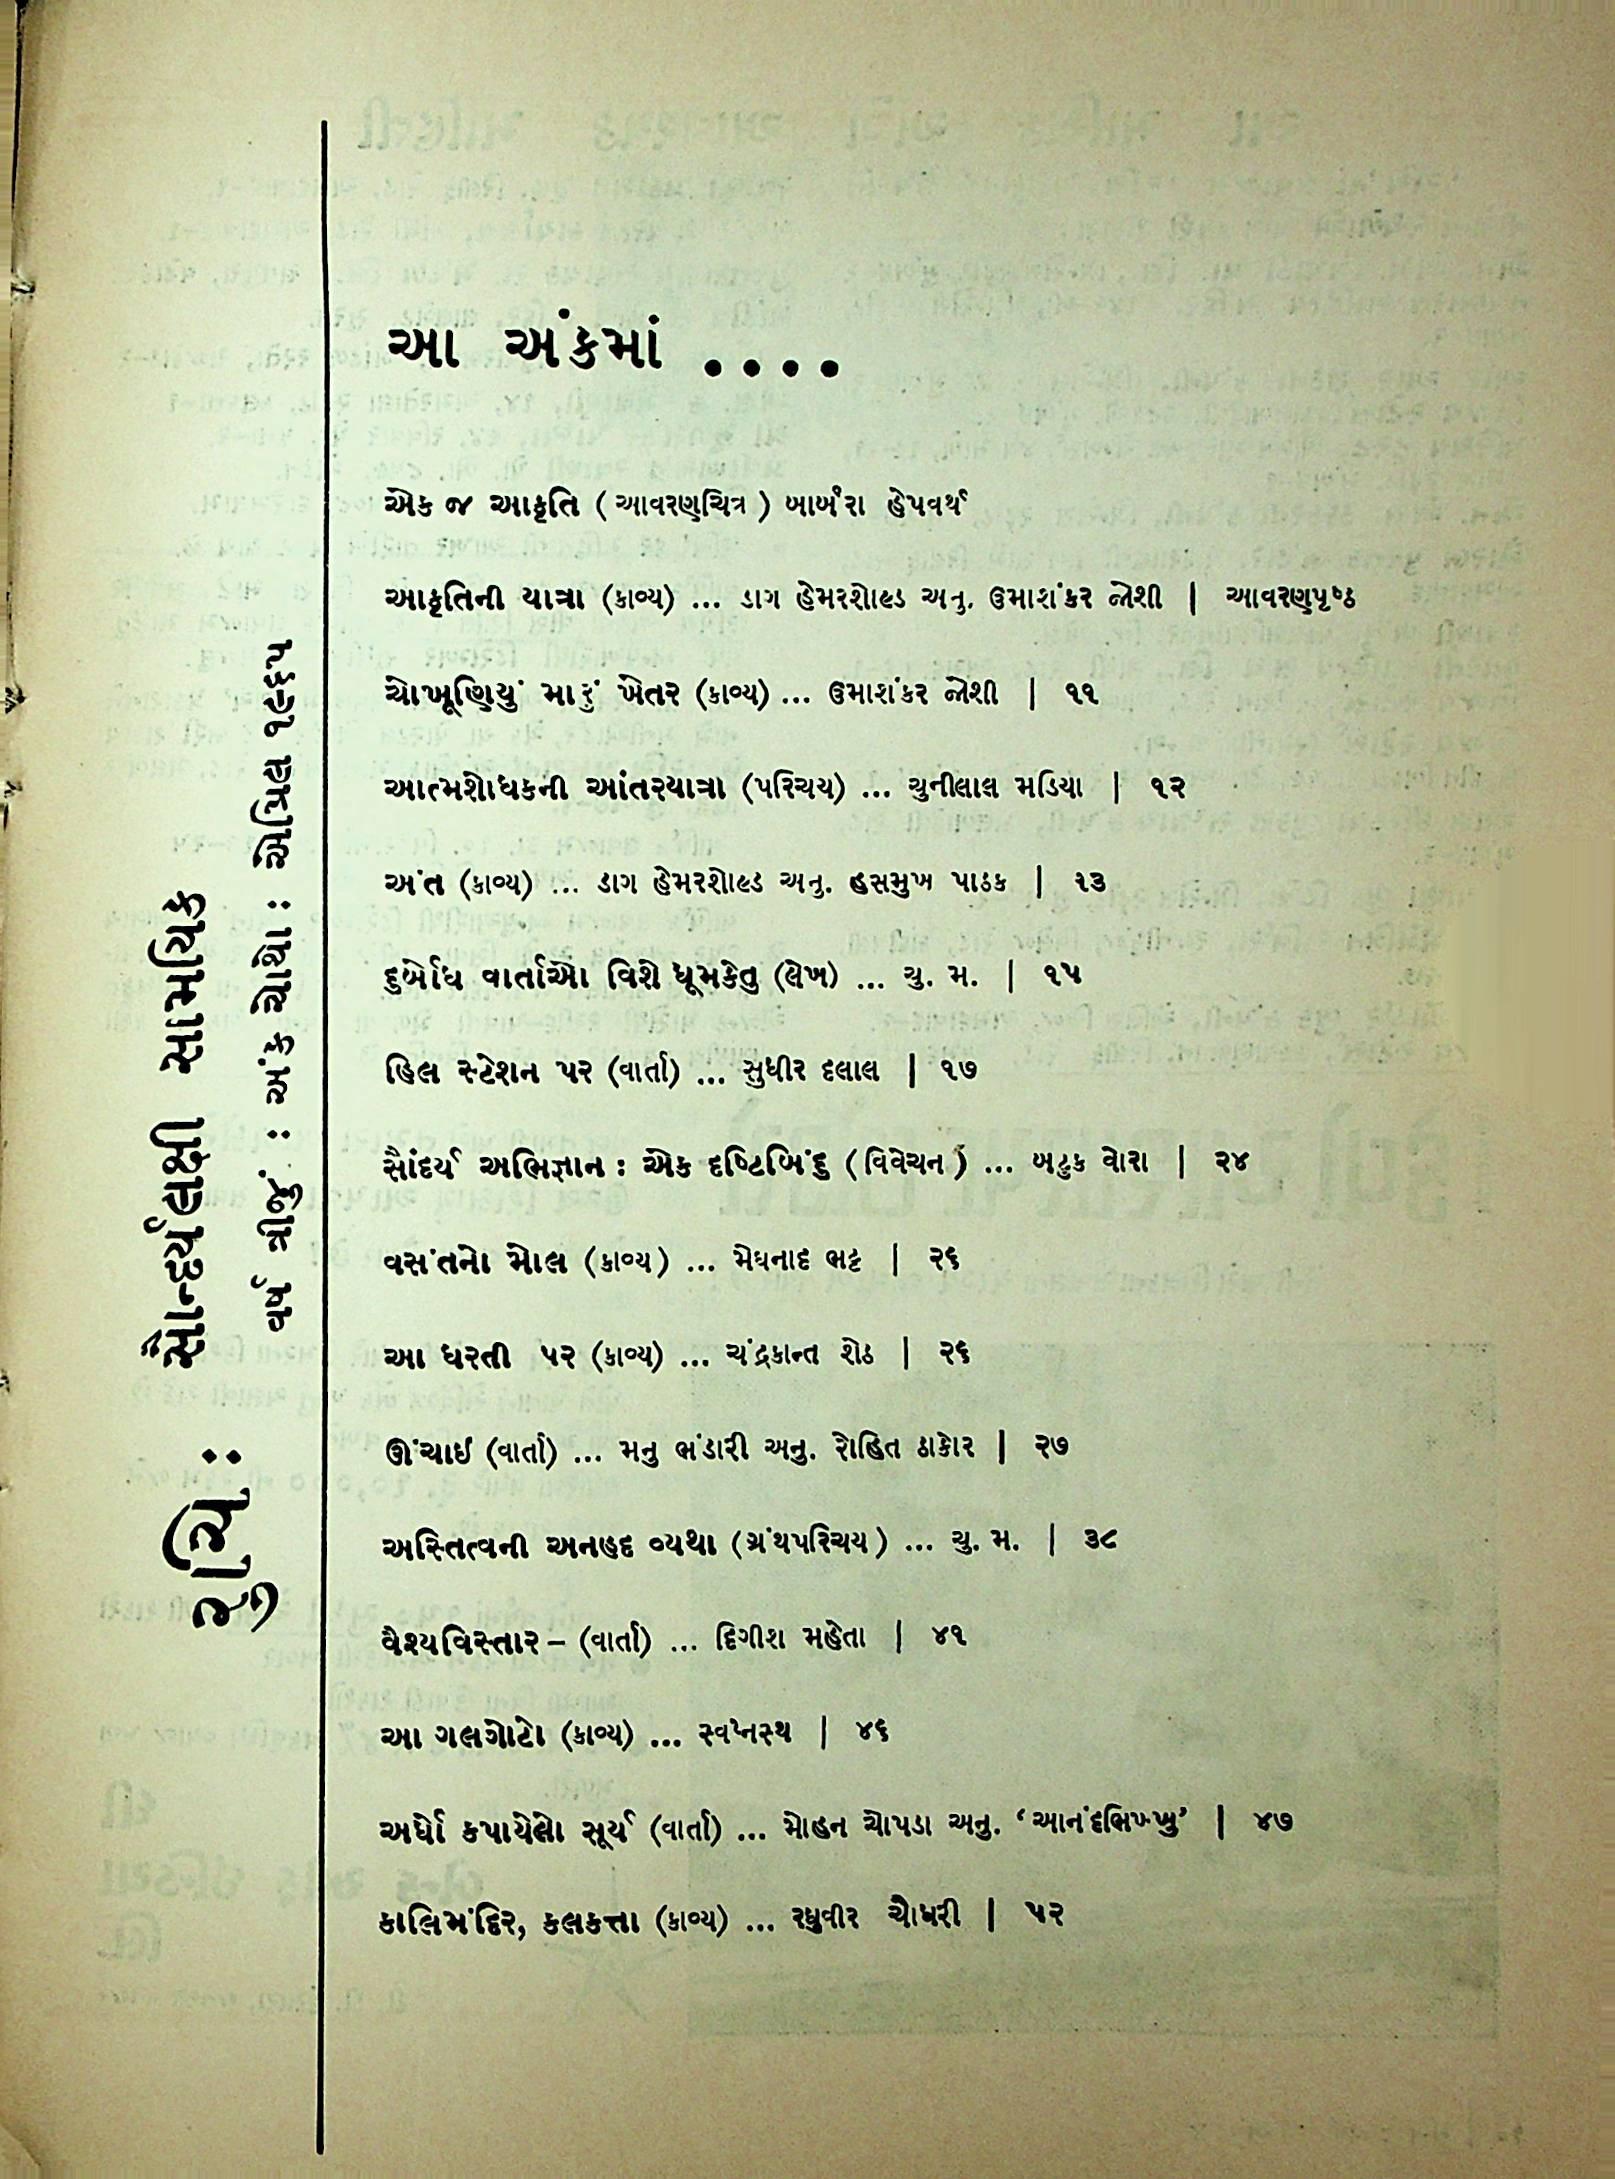 રુચિ :
સૌન્દર્યલક્ષી સામયિક
વર્ષ ત્રીજું : અંક ચોથો : એપ્રિલ ૧૯૬૫
આ અંકમાં ....
એક જ આકૃતિ (આવરણચિત્ર) બાર્બરા હેપવર્થ
આકૃતિની યાત્રા (કાવ્ય) ... ડાગ હેમરશોલ્ડ અનુ. ઉમાશંકર જોશી | આવરણપૃષ્ઠ
ચોખૂણિયું મારું ખેતર (કાવ્ય) ... ઉમાશંકર જોશી | ૧૧
આત્મશોધકની આંતરયાત્રા (પરિચય) ... ચુનીલાલ મડિયા | ૧૨
અંત (કાવ્ય) ... ડાગ હેમરશોલ્ડ અનુ. હસમુખ પાઠક | ૧૩
દુર્બોધ વાર્તાઓ વિશે ધૂમકેતુ (લેખ) ... ચુ. મ. | ૧૫
હિલ સ્ટેશન પર (વાર્તા) ... સુધીર દલાલ | ૧૭
સૌંદર્ય અભિજ્ઞાન : એક દૃષ્ટિબિંદુ (વિવેચન) ... બટુક વોરા | ૨૪
વસંતનો મોલ (કાવ્ય) ... મેઘનાદ ભટ્ટ | ૨૬
આ ધરતી પર (કાવ્ય) ... ચંદ્રકાન્ત શેઠ | ૨૬
ઊંચાઈ (વાર્તા) ... મનુ ભંડારી અનુ. રોહિત ઠાકોર | ૨૭
અસ્તિત્વની અનહદ વ્યથા (ગ્રંથપરિચય) ... ચુ. મ. | ૩૮
વૈશ્યવિસ્તાર – (વાર્તા) ... દિગીશ મહેતા | ૪૧
આ ગલગોટો (કાવ્ય) ... સ્વપ્નસ્થ | ૪૬
અર્ધો કપાયેલો સૂર્ય (વાર્તા) ... મોહન ચોપડા અનુ. ‘આનંદભિખ્ખુ’ | ૪૭
કાલિમંદિર, કલકત્તા (કાવ્ય) ... રઘુવીર ચૌધરી | ૫૨